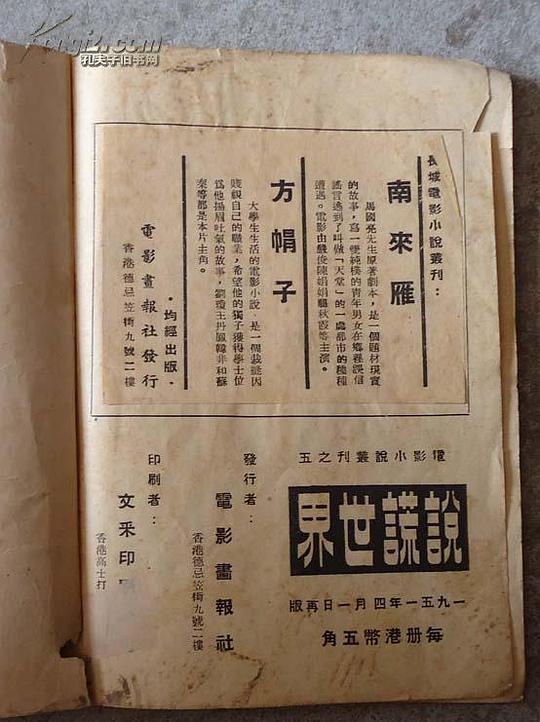 kongfz.com
孔夫子旧书网
長城電影小說叢刊：
南來雁
馬國亮先生原著劇本，是一個題材現實
的故事，寫一雙純樸的青年男女在鄉裡誤信
謠言逃到了叫做「天堂」的一處都市的種種
遭遇。電影由嚴俊陳娟娟龔秋霞等主演。
方帽子
大學生生活的電影小說，是一個裁縫因
賤視自己的職業，希望他的獨子獲得學士位
為他揚眉吐氣的故事，劉瓊王丹鳳韓非和蘇
秦等都是本片主角。
·均經出版·
電影畫報社發行
香港德忌笠街九號二樓
電影小說叢刊之五
說謊世界
一九五一年四月一日再版
每册港幣五角
發行者：
電影畫報社
香港德忌笠街九號二樓
印刷者：
文采印
香港高士打